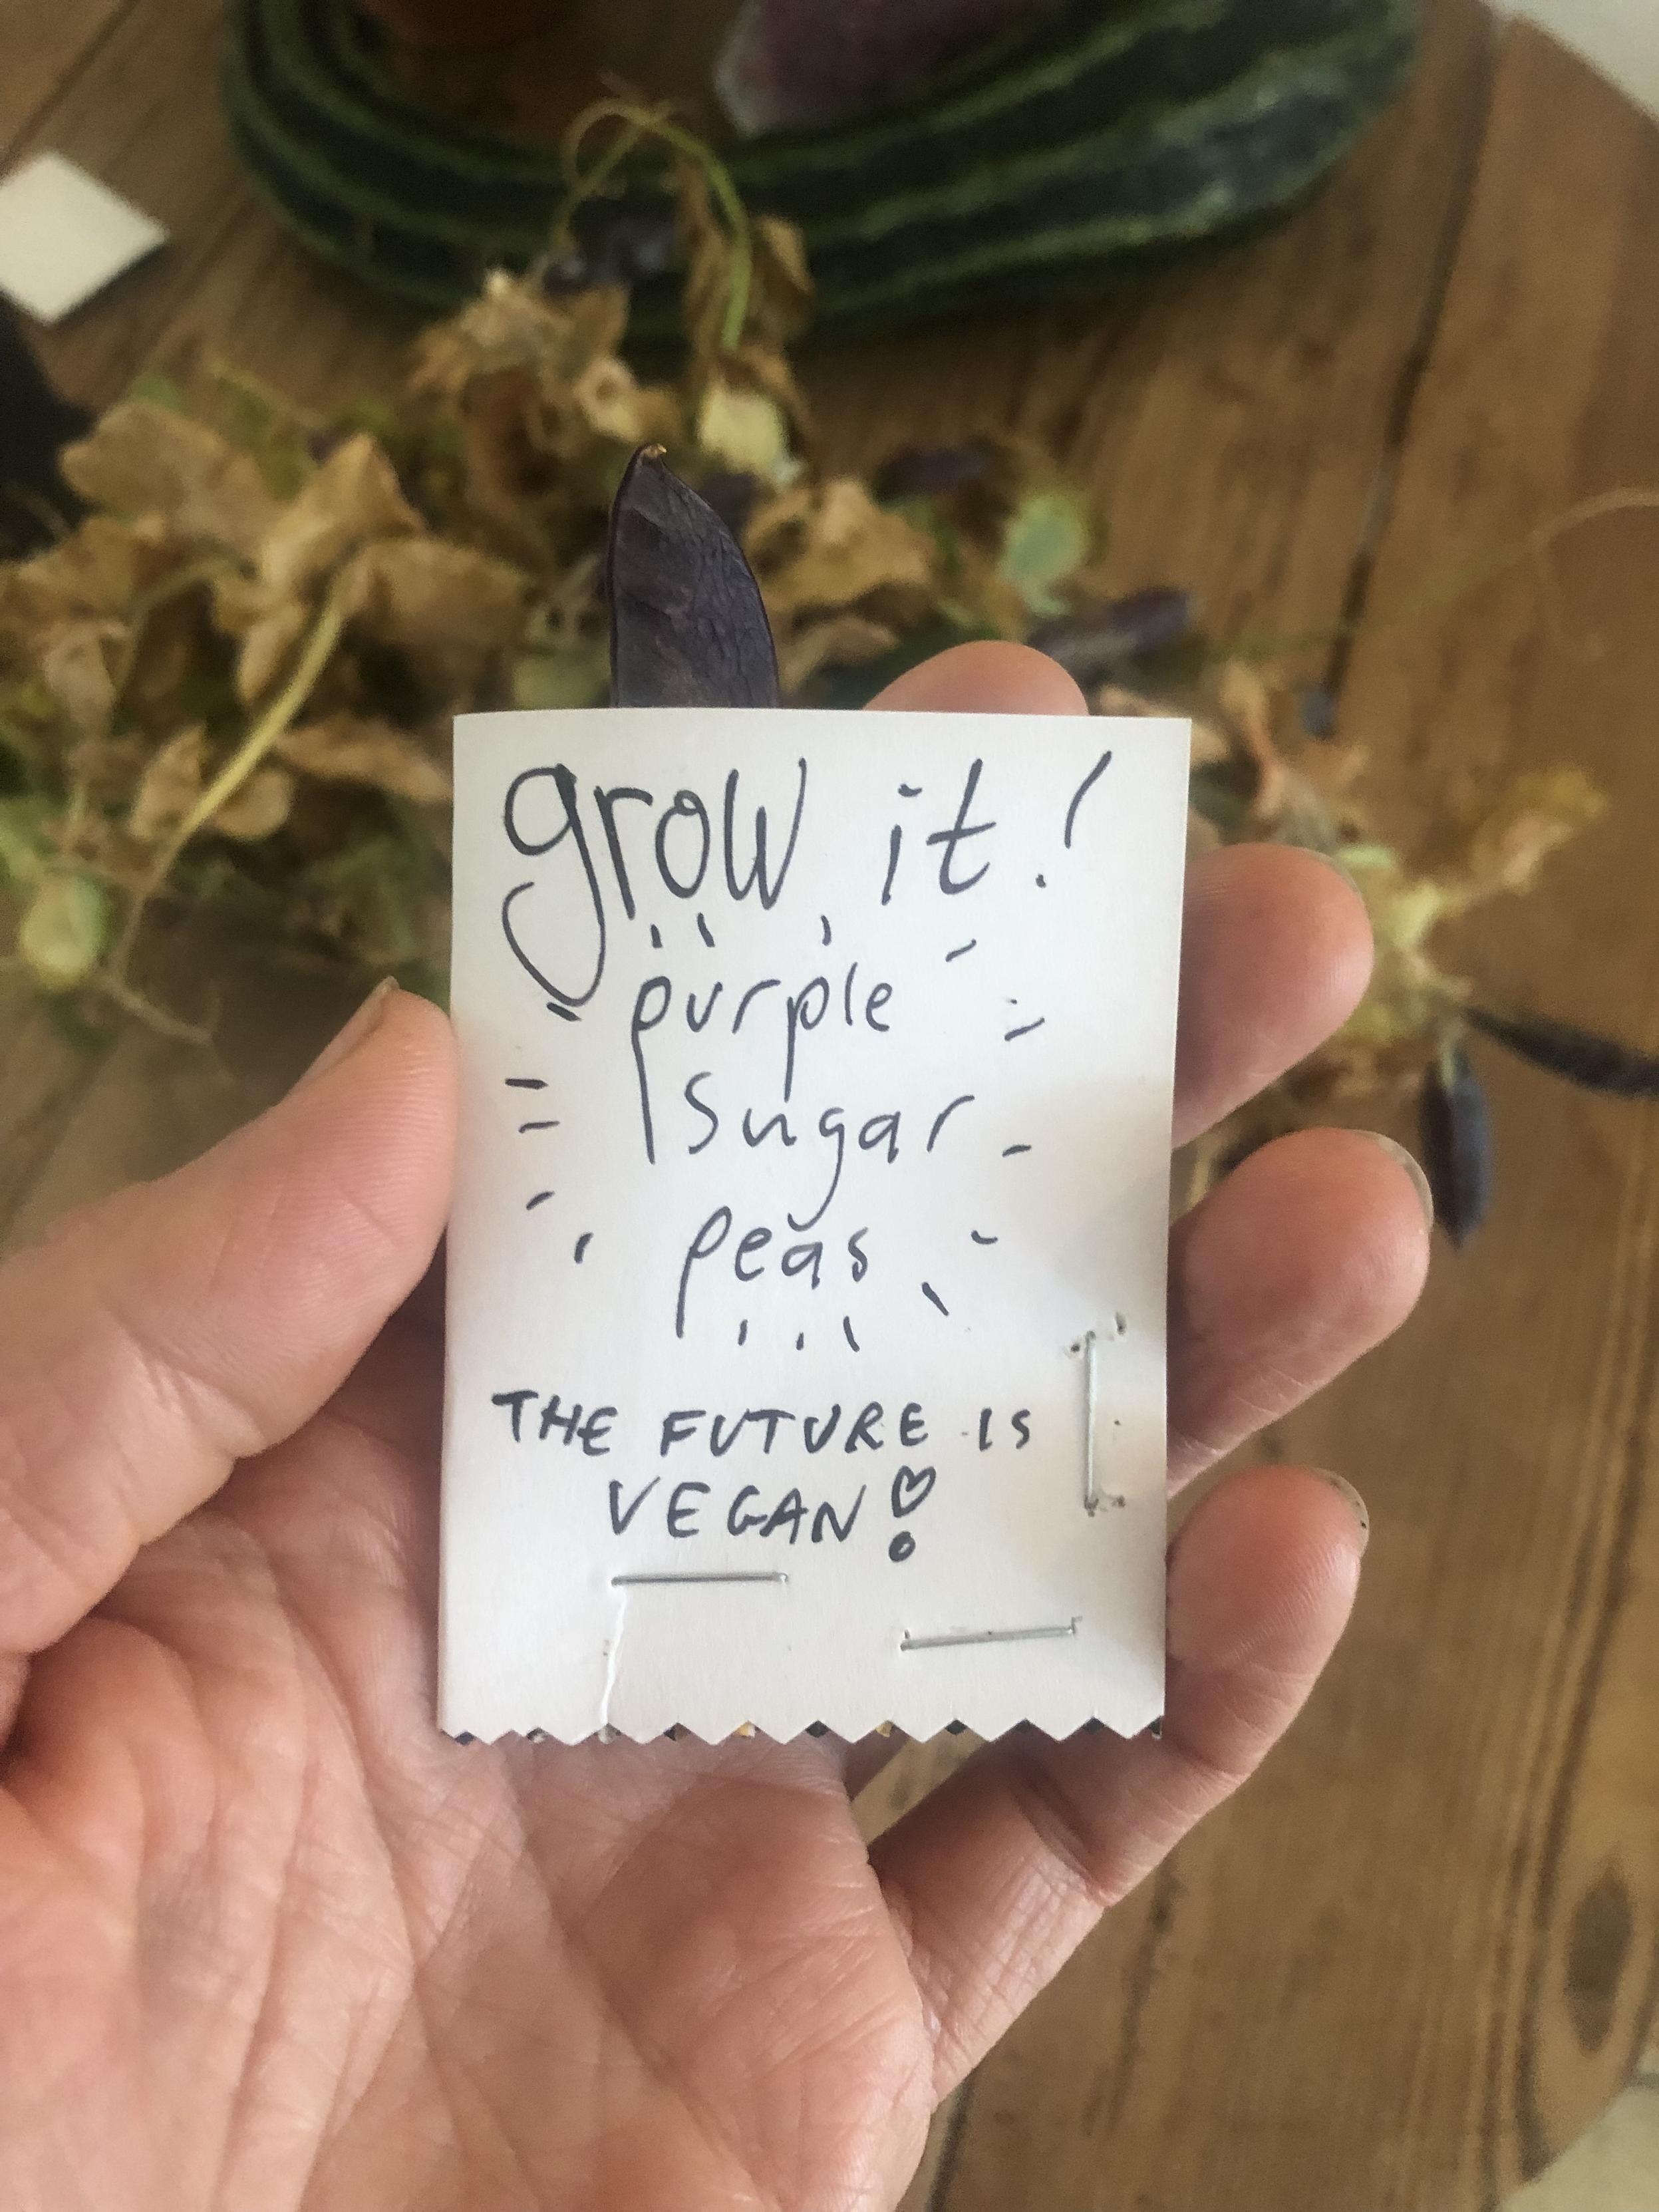 grow it!
purple
sugar
peas
THE FUTURE IS
VEGAN!